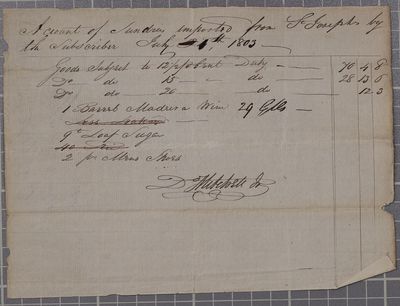 Account of Sundries imported from St Josephs by
the Subscriber July 1803
Goods Subject to 12½ p Cent Duty 70 4 8
Do do 15 do 28 13 6
Do do 20 do 12 3
1 Barrel Madeira Wine 29 Glls
9 lb Loaf Sugar
2 pr Mens Shoes
D Mitchell Jr